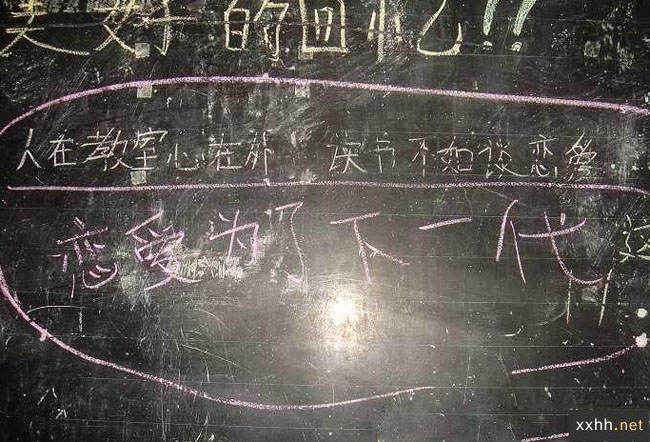 美好的回忆!!
人在教室心在外 读书不如谈恋爱
恋爱为了下一代
这
xxhh.net